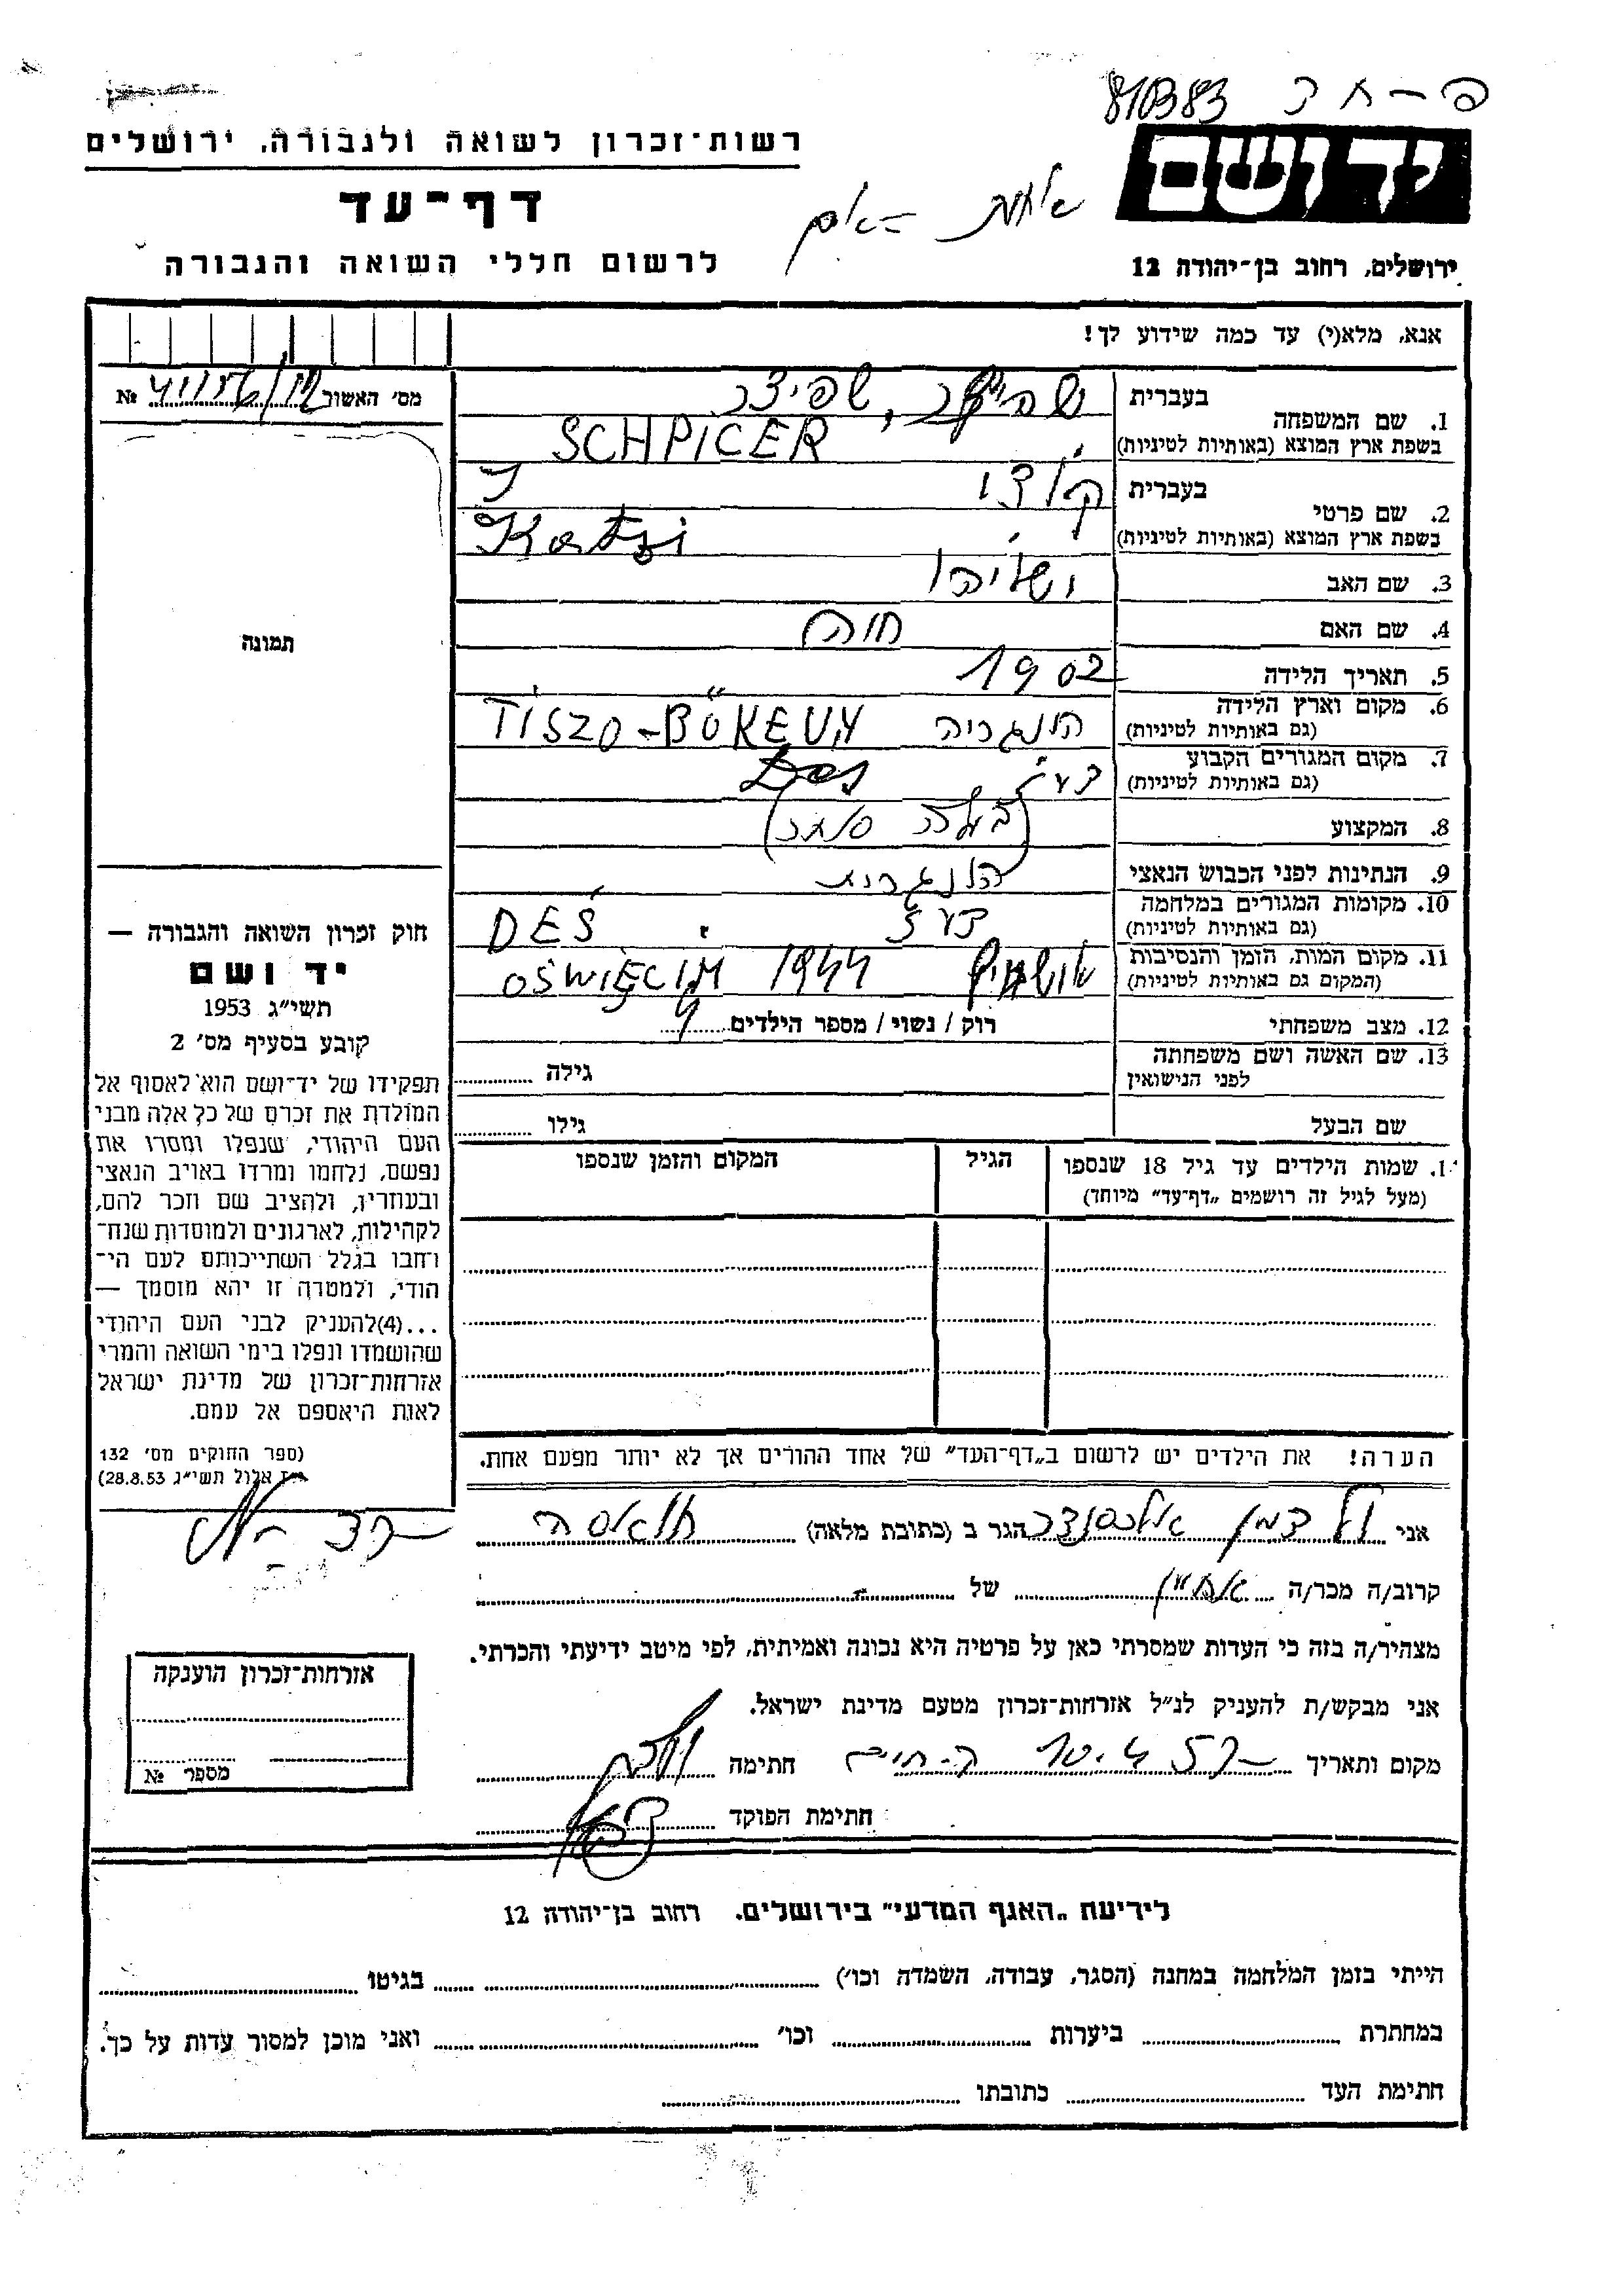 810383
רשות־זכרון לשואה ולגבורה, ירושלים
יד ושם
דף־עד
לרשום חללי השואה והגבורה
ירושלים, רחוב בן־יהודה 12
אנא, מלא(י) עד כמה שידוע לך!
מס׳ האשור №
1. שם המשפחה בעברית שפיצר
בשפת ארץ המוצא (באותיות לטיניות) SCHPICER
2. שם פרטי בעברית
בשפת ארץ המוצא (באותיות לטיניות) Katzi
3. שם האב ישעיהו
4. שם האם חוה
5. תאריך הלידה 1902
6. מקום וארץ הלידה (גם באותיות לטיניות) הונגריה
7. מקום המגורים הקבוע (גם באותיות לטיניות) דעז
8. המקצוע
9. הנתינות לפני הכבוש הנאצי הונגרית
10. מקומות המגורים במלחמה (גם באותיות לטיניות) דעז DEŚ
11. מקום המות, הזמן והנסיבות (המקום גם באותיות לטיניות) אושוויץ 1944 OŚWIĘCIM
12. מצב משפחתי רוק / נשוי / מספר הילדים
13. שם האשה ושם משפחתה לפני הנישואין גילה
שם הבעל גילו
1. שמות הילדים עד גיל 18 שנספו (מעל לגיל זה רושמים „דף־עד״ מיוחד) הגיל המקום והזמן שנספו
הערה! את הילדים יש לרשום ב„דף־העד״ של אחד ההורים אך לא יותר מפעם אחת.
תמונה
חוק זכרון השואה והגבורה —
יד ושם
תשי״ג 1953
קובע בסעיף מס׳ 2
תפקידו של יד־ושם הוא לאסוף אל
המולדת את זכרם של כל אלה מבני
העם היהודי, שנפלו ומסרו את
נפשם, נלחמו ומרדו באויב הנאצי
ובעוזריו, ולהציב שם וזכר להם,
לקהילות, לארגונים ולמוסדות שנח־
רבו בגלל השתייכותם לעם הי־
הודי, ולמטרה זו יהא מוסמך —
...(4)להעניק לבני העם היהודי
שהושמדו ונפלו בימי השואה והמרי
אזרחות־זכרון של מדינת ישראל
לאות היאספם אל עמם.
(ספר החוקים מס׳ 132
י״ז אלול תשי״ג 28.8.53)
אני ולדמן אלכסנדר הגר ב (כתובת מלאה)
קרוב/ה מכר/ה של
מצהיר/ה בזה כי העדות שמסרתי כאן על פרטיה היא נכונה ואמיתית, לפי מיטב ידיעתי והכרתי.
אני מבקש/ת להעניק לנ״ל אזרחות־זכרון מטעם מדינת ישראל.
מקום ותאריך חתימה
חתימת הפוקד
אזרחות־זכרון הוענקה
מספר №
לידיעת „האגף המדעי״ בירושלים. רחוב בן־יהודה 12
הייתי בזמן המלחמה במחנה (הסגר, עבודה, השמדה וכו׳) בגיטו
במחתרת ביערות וכו׳ ואני מוכן למסור עדות על כך.
חתימת העד כתובתו